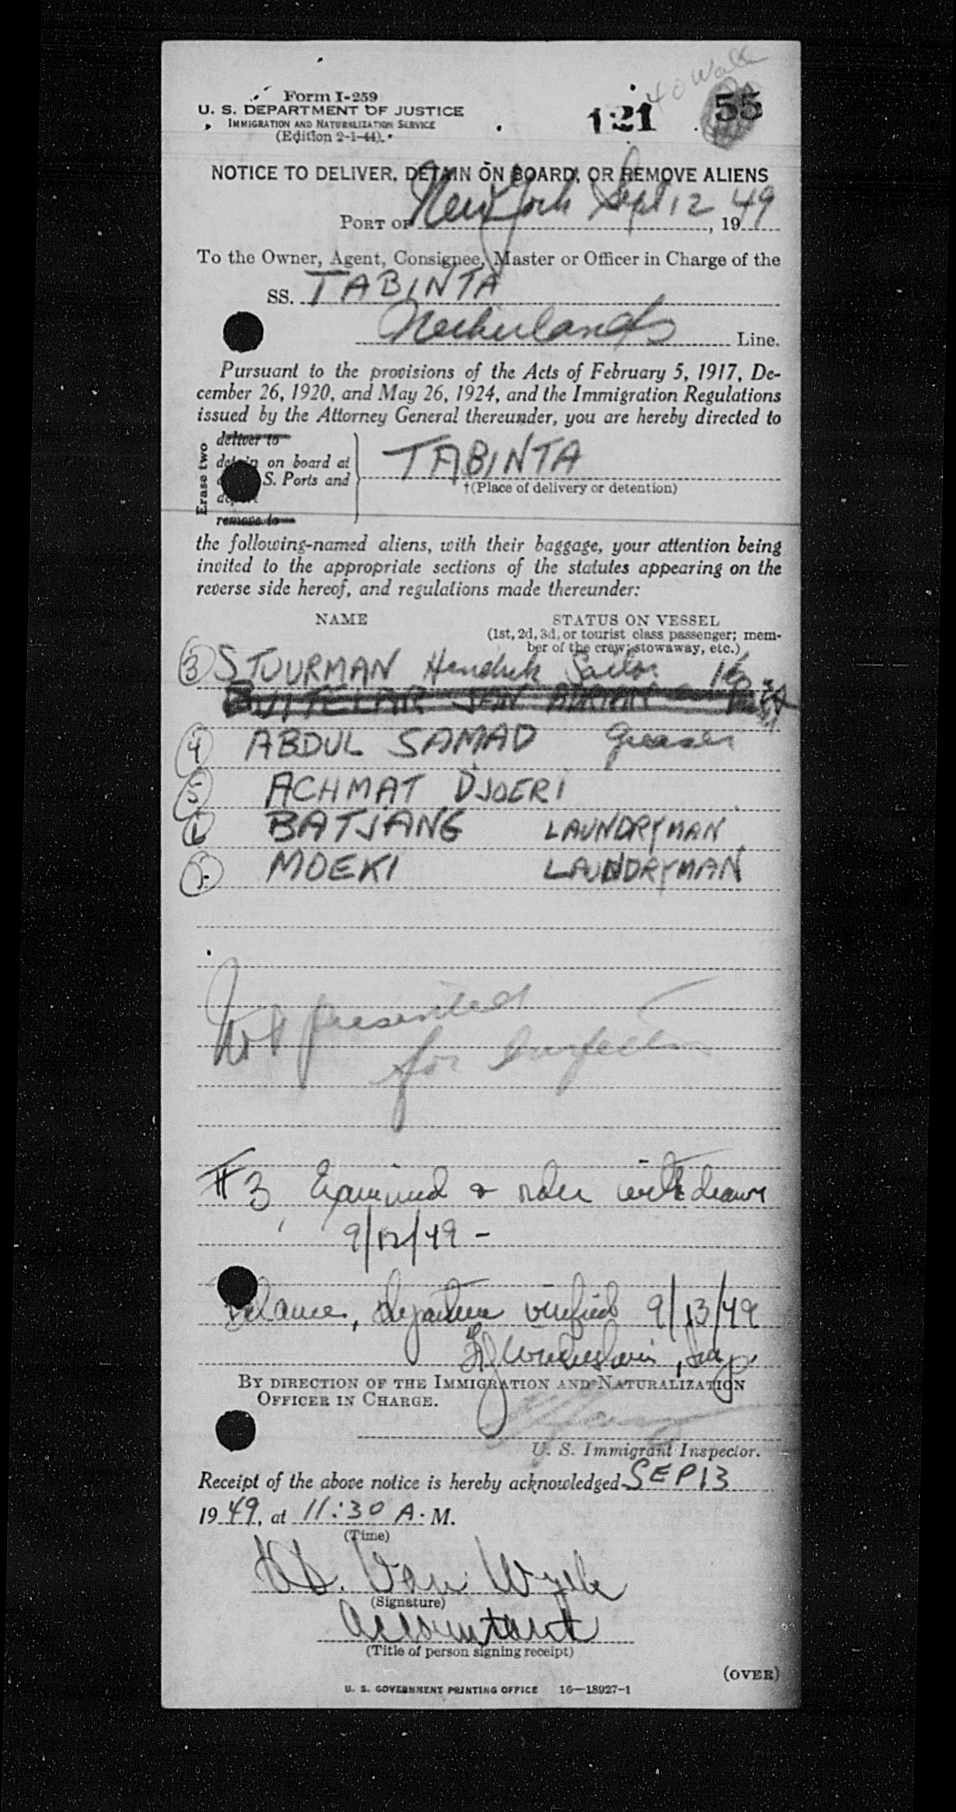 40 Wall
Form I-259
U. S. DEPARTMENT OF JUSTICE
IMMIGRATION AND NATURALIZATION SERVICE
(Edition 2-1-44)
121
55
NOTICE TO DELIVER, DETAIN ON BOARD, OR REMOVE ALIENS
PORT OF New York Sept 12, 1949
To the Owner, Agent, Consignee, Master or Officer in Charge of the
SS. TABINTA
Netherlands Line.
Pursuant to the provisions of the Acts of February 5, 1917, De-
cember 26, 1920, and May 26, 1924, and the Immigration Regulations
issued by the Attorney General thereunder, you are hereby directed to
Erase two
deliver to
detain on board at
S. Ports and
remove to
TABINTA
†(Place of delivery or detention)
the following-named aliens, with their baggage, your attention being
invited to the appropriate sections of the statutes appearing on the
reverse side hereof, and regulations made thereunder:
NAME STATUS ON VESSEL
(1st, 2d, 3d, or tourist class passenger; mem-
ber of the crew; stowaway, etc.)
3 STUURMAN Hendrik Sailor
BUITELAAR JAN ADRIAN
4 ABDUL SAMAD Greaser
5 ACHMAT DJOERI
6 BATJANG LAUNDRYMAN
7 MOEKI LAUNDRYMAN
Not presented
for Inspection
#3, Examined & order withdrawn
9/12/49 -
Balance, departure verified 9/13/49
BY DIRECTION OF THE IMMIGRATION AND NATURALIZATION
OFFICER IN CHARGE.
U. S. Immigrant Inspector.
Receipt of the above notice is hereby acknowledged SEP 13
1949, at 11:30 A. M.
(Time)
Van Wyck
(Signature)
Accountant
(Title of person signing receipt)
(OVER)
U. S. GOVERNMENT PRINTING OFFICE 16—18927-1